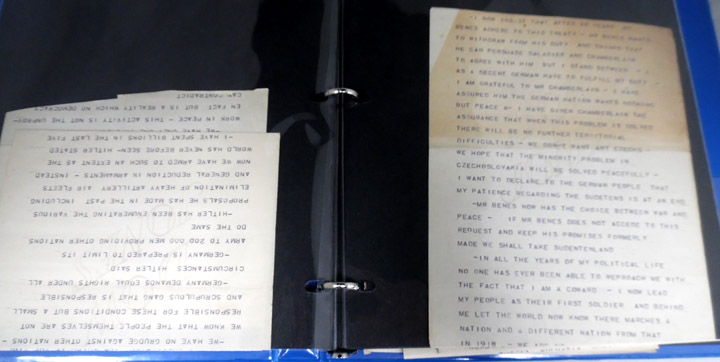 -WE HAVE NO GRUDGE AGAINST OTHER NATIONS -
WE KNOW THAT THE PEOPLE THEMSELVES ARE NOT
RESPONSIBLE FOR THESE CONDITIONS BUT A SMALL
AND SCRUPULOUS GANG THAT IS RESPONSIBLE
-GERMANY DEMANDS EQUAL RIGHTS UNDER ALL
CIRCUMSTANCES HITLER SAID
-GERMANY IS PREPARED TO LIMIT ITS
ARMY TO 200,000 MEN PROVIDING OTHER NATIONS
DO THE SAME
-HITLER HAS BEEN ENUMERATING THE VARIOUS
PROPOSALS HE HAS MADE IN THE PAST INCLUDING
ELIMINATION OF HEAVY ARTILLERY AIR FLEETS
AND GENERAL REDUCTION IN ARMAMENTS - INSTEAD
NOW WE HAVE ARMED TO SUCH AN EXTENT AS THE
WORLD HAS NEVER BEFORE SEEN- HITLER STATED
-I HAVE SPENT BILLIONS IN THE LAST FIVE
-WE HAVE
WORK IN PEACE - THIS ACTIVITY IS NOT THE UNPROV-
EN FACT BUT IS A REALITY WHICH NO DEMOCRACY
CAN CONTRADICT
-I NOW THAT AFTER 20 YEARS MR
BENES ADHERE TO THIS TREATY - MR BENES WANTS
TO WITHDRAW FROM HIS DUTY AND
HE CAN PERSUADE DALADIER AND CHAMBERLAIN
TO AGREE WITH HIM BUT I STAND BETWEEN - I
AS A DECENT GERMAN HAVE TO FULFILL MY DUTY -
I AM GRATEFUL TO MR CHAMBERLAIN - I HAVE
ASSURED HIM THE GERMAN NATION WANTS NOTHING
BUT PEACE - I HAVE GIVEN CHAMBERLAIN THE
ASSURANCE THAT WHEN THIS PROBLEM IS SOLVED
THERE WILL BE NO FURTHER TERRITORIAL
DIFFICULTIES - WE DON'T WANT ANY CZECHS -
WE HOPE THAT THE MINORITY PROBLEM IN
CZECHOSLOVAKIA WILL BE SOLVED PEACEFULLY -
I WANT TO DECLARE TO THE GERMAN PEOPLE THAT
MY PATIENCE REGARDING THE SUDETENS IS AT AN END
-MR BENES NOW HAS THE CHOICE BETWEEN WAR AND
PEACE - IF MR BENES DOES NOT ACCEDE TO THIS
REQUEST AND KEEP HIS PROMISES FORMERLY
MADE WE SHALL TAKE SUDENTERLAND
-IN ALL THE YEARS OF MY POLITICAL LIFE
NO ONE HAS EVER BEEN ABLE TO REPROACH ME WITH
THE FACT THAT I AM A COWARD - I NOW LEAD
MY PEOPLE AS THEIR FIRST SOLDIER AND BEHIND
ME LET THE WORLD NOW KNOW THERE MARCHES A
NATION AND A DIFFERENT NATION FROM THAT
IN 1918 -